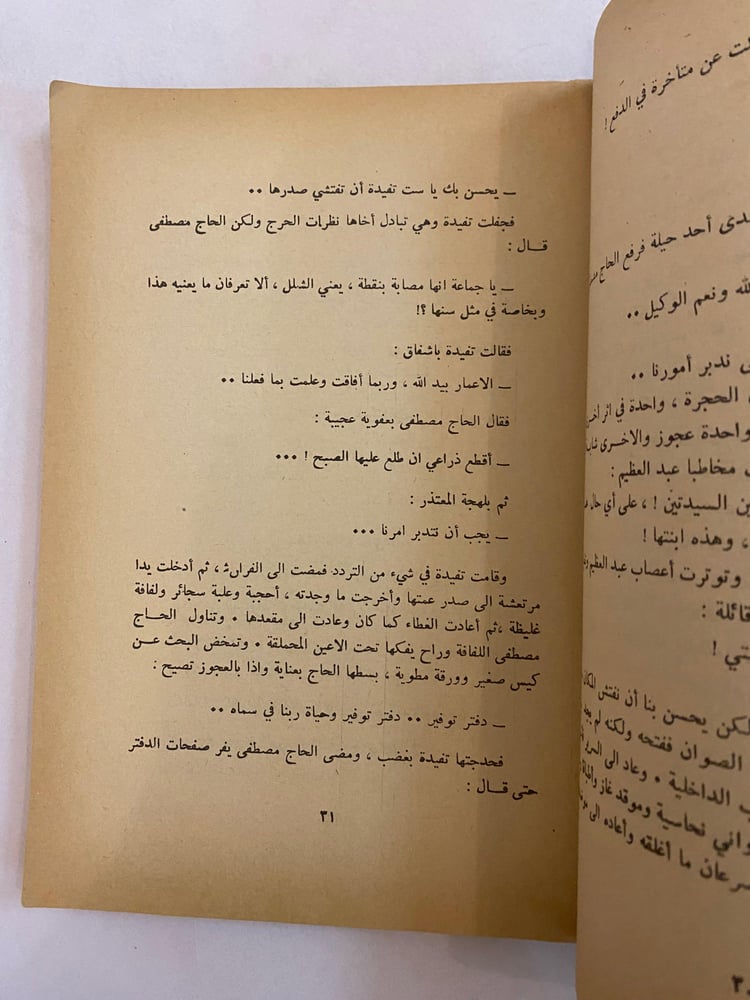 لت عن متأخرة في الدفع !
دى أحد حيلة فرفع الحاج
لله ونعم الوكيل ..
ندبر أمورنا ..
الحجرة ، واحدة في اثر
واحدة عجوز والاخرى
مخاطبا عبد العظيم :
ين السيدتين ! ، على أي حال
، وهذه ابنتها !
وتوترت أعصاب عبد العظيم
قائلة :
تي !
لكن يحسن بنا أن نفتش المكان
الصوان ففتحه ولكنه لم
ب الداخلية . وعاد الى
واني نحاسية وموقد غاز
سرعان ما أغلقه وأعاده الى
٣٠
ــ يحسن بك يا ست تفيدة أن تفتشي صدرها ..
فجفلت تفيدة وهي تبادل أخاها نظرات الحرج ولكن الحاج مصطفى
قــال :
ــ يا جماعة انها مصابة بنقطة ، يعني الشلل ، ألا تعرفان ما يعنيه هذا
وبخاصة في مثل سنها ؟!
فقالت تفيدة باشفاق :
ــ الاعمار بيد الله ، وربما أفاقت وعلمت بما فعلنا ..
فقال الحاج مصطفى بعفوية عجيبة :
ــ أقطع ذراعي ان طلع عليها الصبح ! ...
ثم بلهجة المعتذر :
ــ يجب أن نتدبر امرنا ...
وقامت تفيدة في شيء من التردد فمضت الى الفراش ، ثم أدخلت يدا
مرتعشة الى صدر عمتها وأخرجت ما وجدته ، أحجبة وعلبة سجائر ولفافة
غليظة ،ثم أعادت الغطاء كما كان وعادت الى مقعدها . وتناول الحاج
مصطفى اللفافة وراح يفكها تحت الاعين المحملقة . وتمخض البحث عــن
كيس صغير وورقة مطوية ، بسطها الحاج بعناية واذا بالعجوز تصيح :
ــ دفتر توفير .. دفتر توفير وحياة ربنا في سماه ..
فحدجتها تفيدة بغضب ، ومضى الحاج مصطفى يفر صفحات الدفتر
حتى قــال :
٣١